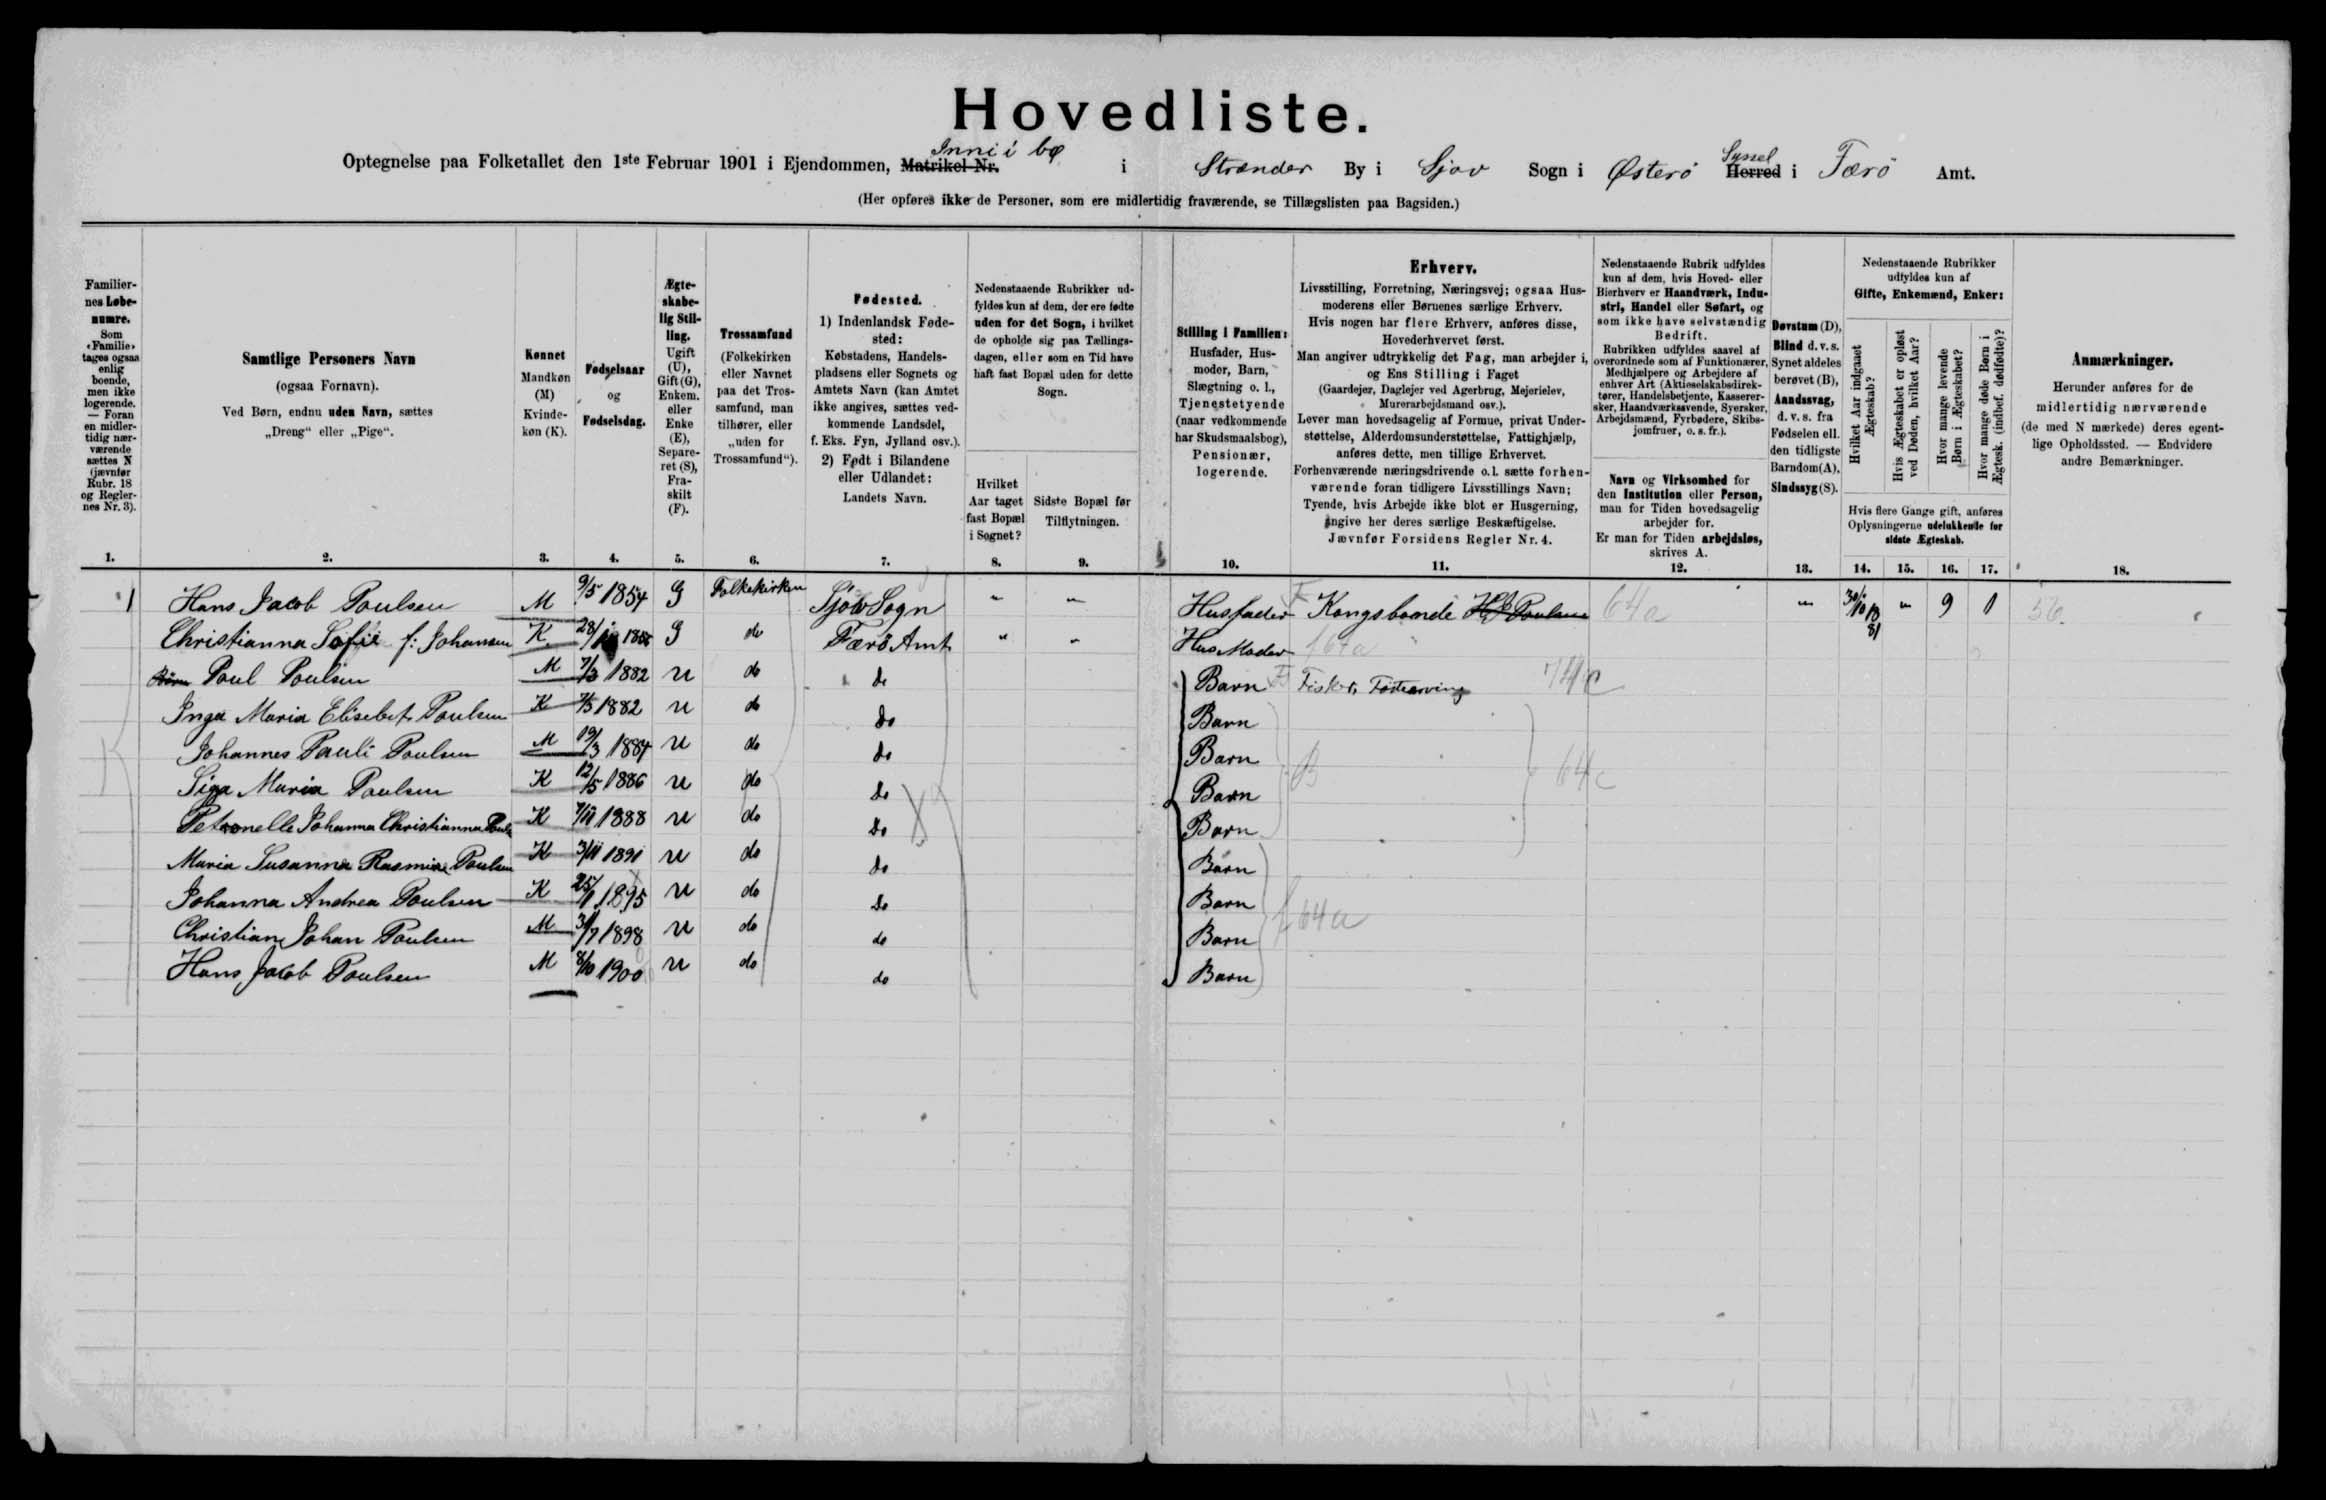 Hovedliste.
Inni i bø
Optegnelse paa Folketallet den 1ste Februar 1901 i Ejendommen, Matrikel-Nr. i Strænder By i Sjov Sogn i Østerö Syssel Herred i Færö Amt.
(Her opføres ikke de Personer, som ere midlertidig fraværende, se Tillægslisten paa Bagsiden.)
Familiernes Løbenumre.
Som «Familie» tages ogsaa enlig boende, men ikke logerende. — Foran en midlertidig nærværende sættes N (jævnfør Rubr. 18 og Reglernes Nr. 3).
Samtlige Personers Navn
(ogsaa Fornavn).
Ved Børn, endnu uden Navn, sættes
„Dreng“ eller „Pige“.
Kønnet
Mandkøn (M)
Kvindekøn (K).
Fødselsaar
og
Fødselsdag.
Ægteskabelig Stilling.
Ugift (U), Gift (G), Enkem. eller Enke (E), Separeret (S), Fraskilt (F).
Trossamfund
(Folkekirken eller Navnet paa det Trossamfund, man tilhører, eller „uden for Trossamfund“).
Fødested.
1) Indenlandsk Fødested:
Købstadens, Handelspladsens eller Sognets og Amtets Navn (kan Amtet ikke angives, sættes vedkommende Landsdel, f. Eks. Fyn, Jylland osv.).
2) Født i Bilandene eller Udlandet:
Landets Navn.
Nedenstaaende Rubrikker udfyldes kun af dem, der ere fødte uden for det Sogn, i hvilket de opholde sig paa Tællingsdagen, eller som en Tid have haft fast Bopæl uden for dette Sogn.
Hvilket Aar taget fast Bopæl i Sognet?
Sidste Bopæl før Tilflytningen.
Stilling i Familien:
Husfader, Husmoder, Barn, Slægtning o. l., Tjenestetyende (naar vedkommende har Skudsmaalsbog), Pensionær, logerende.
Erhverv.
Livsstilling, Forretning, Næringsvej; ogsaa Husmoderens eller Børnenes særlige Erhverv.
Hvis nogen har flere Erhverv, anføres disse, Hovederhvervet først.
Man angiver udtrykkelig det Fag, man arbejder i, og Ens Stilling i Faget
(Gaardejer, Daglejer ved Agerbrug, Mejerielev, Murerarbejdsmand osv.).
Lever man hovedsagelig af Formue, privat Understøttelse, Alderdomsunderstøttelse, Fattighjælp, anføres dette, men tillige Erhvervet.
Forhenværende næringsdrivende o. l. sætte forhenværende foran tidligere Livsstillings Navn;
Tyende, hvis Arbejde ikke blot er Husgerning, angive her deres særlige Beskæftigelse.
Jævnfør Forsidens Regler Nr. 4.
Nedenstaaende Rubrik udfyldes kun af dem, hvis Hoved- eller Bierhverv er Haandværk, Industri, Handel eller Søfart, og som ikke have selvstændig Bedrift.
Rubrikken udfyldes saavel af overordnede som af Funktionærer, Medhjælpere og Arbejdere af enhver Art (Aktieselskabsdirektører, Handelsbetjente, Kasserersker, Haandværkssvende, Syersker, Arbejdsmænd, Fyrbødere, Skibsjomfruer, o. s. fr.).
Navn og Virksomhed for den Institution eller Person, man for Tiden hovedsagelig arbejder for.
Er man for Tiden arbejdsløs, skrives A.
Døvstum (D), Blind d. v. s. Synet aldeles berøvet (B), Aandssvag, d. v. s. fra Fødselen ell. den tidligste Barndom (A), Sindssyg (S).
Nedenstaaende Rubrikker udfyldes kun af
Gifte, Enkemænd, Enker:
Hvilket Aar indgaaet Ægteskab?
Hvis Ægteskabet er opløst ved Døden, hvilket Aar?
Hvor mange levende Børn i Ægteskabet?
Hvor mange døde Børn i Ægtesk. (indbef. dødfødte)?
Hvis flere Gange gift, anføres Oplysningerne udelukkende for sidste Ægteskab.
Anmærkninger.
Herunder anføres for de midlertidig nærværende (de med N mærkede) deres egentlige Opholdssted. — Endvidere andre Bemærkninger.
1. 2. 3. 4. 5. 6. 7. 8. 9. 10. 11. 12. 13. 14. 15. 16. 17. 18.
1 Hans Jacob Poulsen M 9/5 1854 G Folkekirken Sjov Sogn " " Husfader F Kongsbonde H J Poulsen 64a " 30/10 1881 " 9 1 56.
Christianna Sofie f: Johansen K G do Færö Amt " " Hus Moder f 64a
Børn Poul Poulsen M 1882 U do do Barn Fisker,
Inga Maria Elisebet Poulsen K 1882 U do do Barn
Johannes Pauli Poulsen M 19/3 1884 U do do Barn
Siga Maria Poulsen K 12/5 1886 U do do Barn B 64c
Petronelle Johanna Christianna K 1888 U do do Barn
Maria Susanna Rasmine Poulsen K 3/11 1891 U do do Barn
Johanna Andrea Poulsen K 1895 U do do Barn f 64a
Christian Johan Poulsen M 1898 U do do Barn
Hans Jacob Poulsen M 1900 U do do Barn